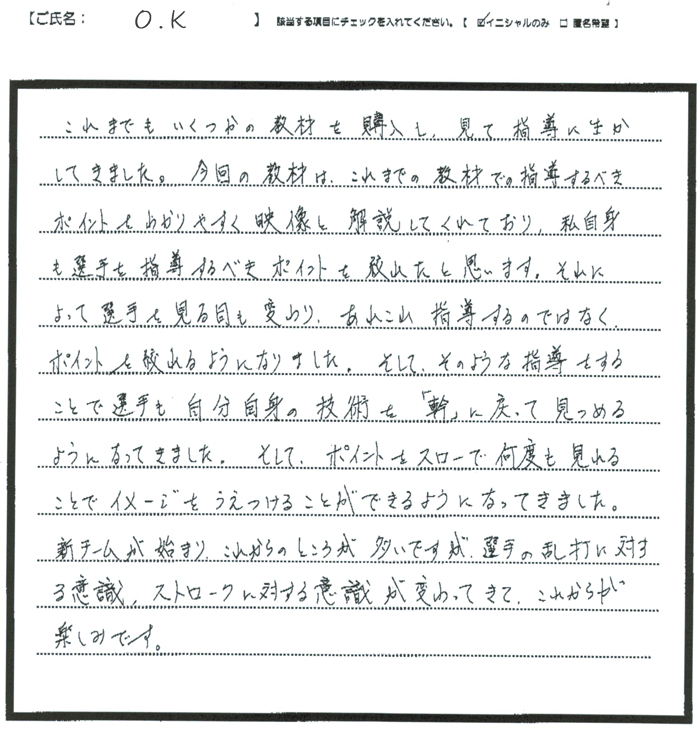 【ご氏名： O.K 】 該当する項目にチェックを入れてください。【 ☑イニシャルのみ □ 匿名希望 】
これまでもいくつかの教材を購入し、見て指導に生か
してきました。今回の教材は、これまでの教材での指導するべき
ポイントをわかりやすく映像と解説してくれており、私自身
も選手を指導するべきポイントを絞れたと思います。それに
よって選手を見る目も変わり、あれこれ指導するのではなく、
ポイントを絞れるようになりました。そして、そのような指導をする
ことで選手も自分自身の技術を「幹」に戻って見つめる
ようになってきました。そして、ポイントをスローで何度も見れる
ことでイメージをうえつけることができるようになってきました。
新チームが始まり、これからのところが多いですが、選手の乱打に対す
る意識、ストロークに対する意識が変わってきて、これからが
楽しみです。